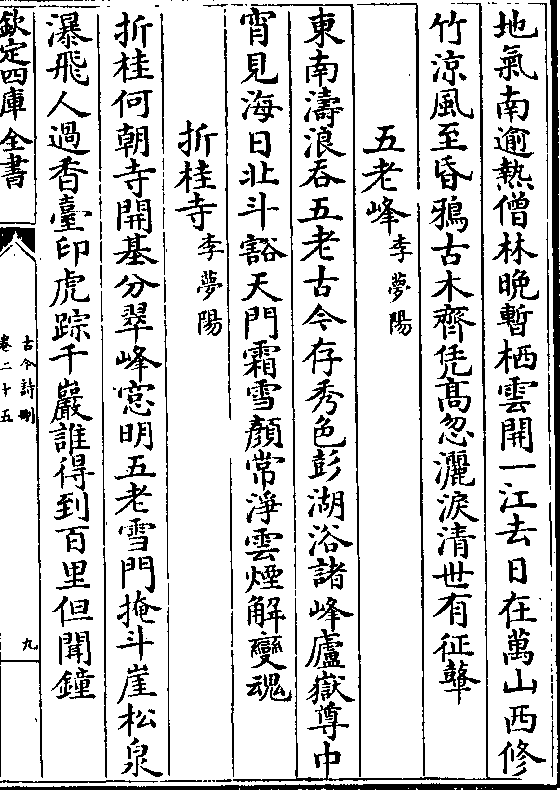 地氣南逾熱僧林晚暫栖雲開一江去日在萬山西修
竹涼風至昏鴉古木齊凭高忽灑淚清世有征鼙
五老峰李夢陽
東南濤浪吞五老古今存秀色彭湖浴諸峰廬嶽尊中
宵見海日北斗豁天門霜雪顔常淨雲煙解變魂
折桂寺李夢陽
折桂何朝寺開基分翠峰窓明五老雪門掩斗崖松泉
瀑飛人過香臺印虎踪千巖誰得到百里但聞鐘
欽定四庫全書
古今詩刪
卷二十五
九